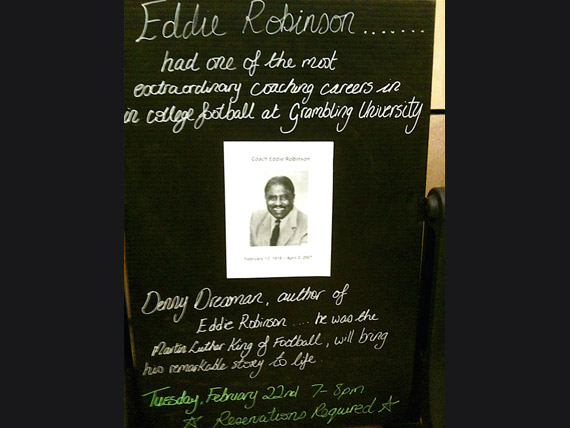 Eddie Robinson.......
had one of the most
exctraordinary coaching careers in
in college football at Grambling University
Coach Eddie Robinson
February 13, 1919 - April 3, 2007
Denny Dressman, author of
Eddie Robinson .... he was the
Martin Luther King of Football, will bring
his remarkable story to life.
Tuesday, February 22nd 7-8pm
☆ Reservations Required ☆